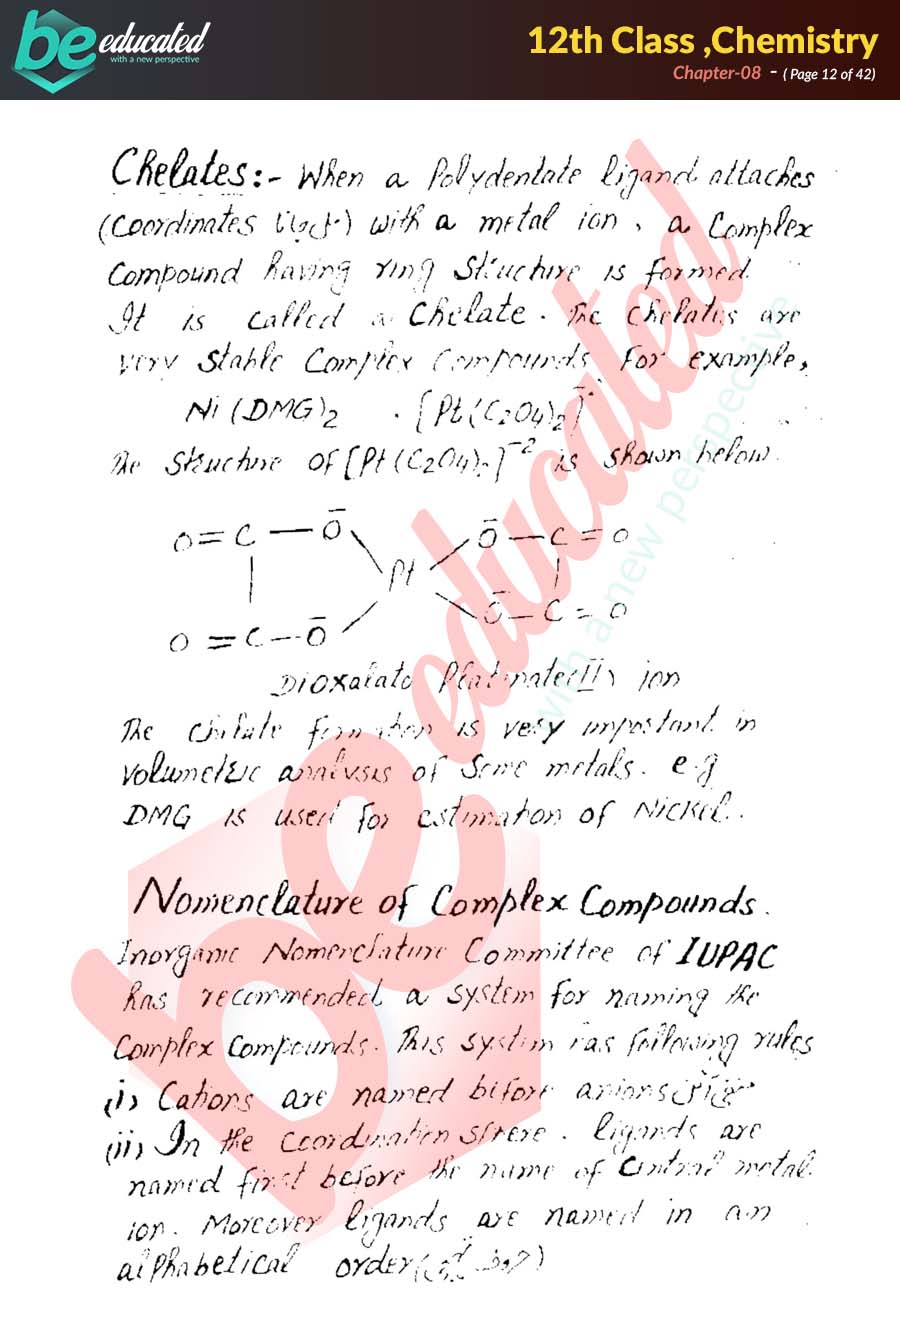 be educated
with a new perspective
12th Class ,Chemistry
Chapter-08 - ( Page 12 of 42)
Chelates:- When a Polydentate ligand attaches
(Coordinates) with a metal ion, a Complex
Compound having ring structure is formed.
It is called a Chelate. The Chelates are
very stable Complex Compounds for example,
Ni (DMG)2 . [Pt(C2O4)2]
The structure of [Pt(C2O4)2]-2 is shown below.
O=C—Ō Ō—C=O
Pt
O=C—Ō Ō—C=O
Dioxalato Platinate(II) ion
The chelate formation is very important in
volumetric analysis of some metals. e.g
DMG is used for estimation of Nickel.
Nomenclature of Complex Compounds.
Inorganic Nomenclature Committee of IUPAC
has recommended a system for naming the
Complex Compounds. This system has following rules
(i) Cations are named before anions
(ii) In the coordination sphere. ligands are
named first before the name of central metal
ion. Moreover ligands are named in an
alphabetical order
be educated
with a new perspective